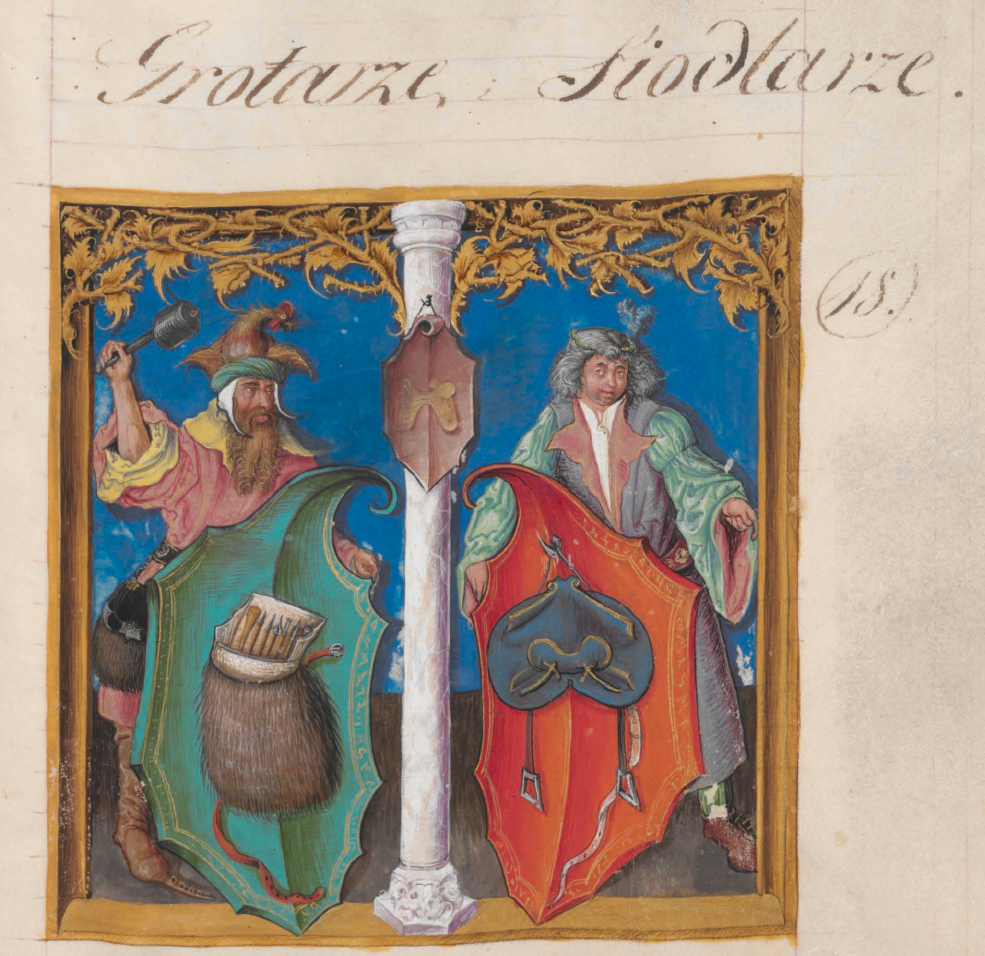 Grotarze, Siodlarze.
18.